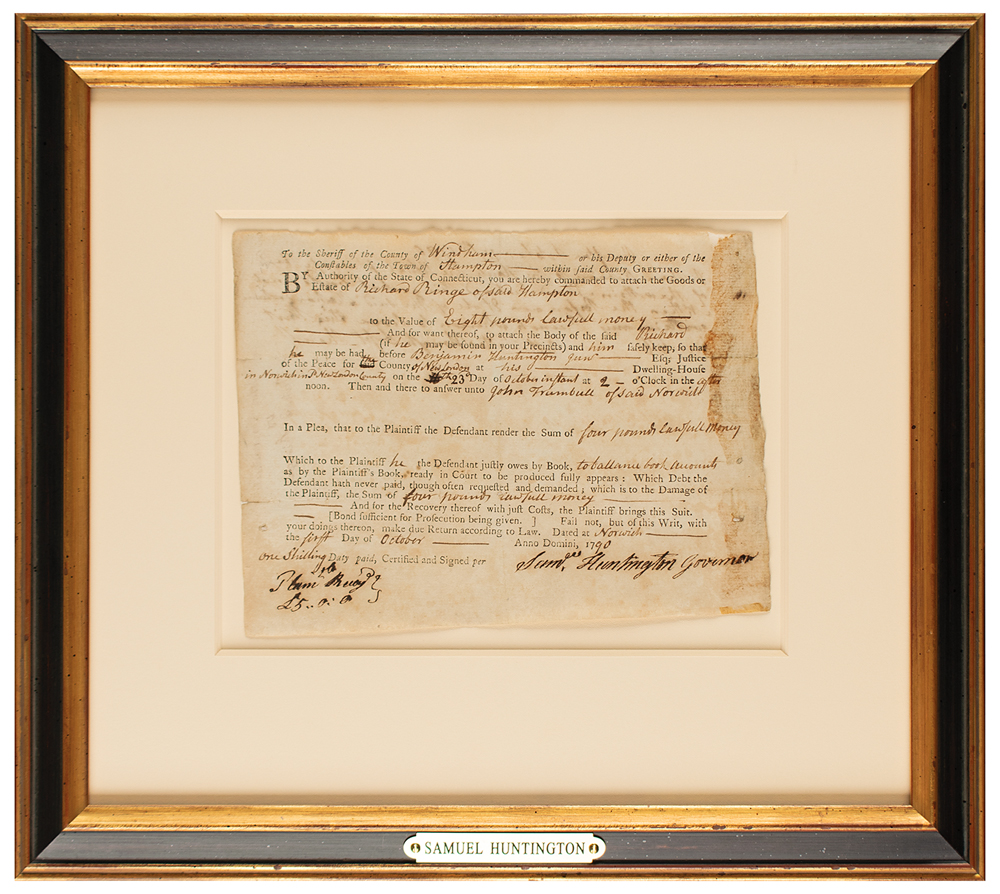 To the Sheriff of the County of Windham or his Deputy or either of the
Constables of the Town of Hampton within said County GREETING.
BY Authority of the State of Connecticut, you are hereby commanded to attach the Goods or
Estate of Richard Ringe of said Hampton
to the Value of Eight pounds Lawfull money
And for want thereof, to attach the Body of the said Richard
(if he may be found in your Precincts) and him safely keep, so that
he may be had before Benjamin Huntington Junr Esq; Justice
of the Peace for County of New London at his Dwelling-House
in Norwich in sd New London County on the 23d Day of October instant at 2 o'Clock in the after
noon. Then and there to answer unto John Trumbull of said Norwich
In a Plea, that to the Plaintiff the Defendant render the Sum of four pounds Lawfull money
Which to the Plaintiff he the Defendant justly owes by Book, to ballance book accounts
as by the Plaintiff's Book, ready in Court to be produced fully appears: Which Debt the
Defendant hath never paid, though often requested and demanded; which is to the Damage of
the Plaintiff, the Sum of four pounds Lawfull money
And for the Recovery thereof with just Costs, the Plaintiff brings this Suit.
[Bond sufficient for Prosecution being given. ] Fail not, but of this Writ, with
your doings thereon, make due Return according to Law. Dated at Norwich
the first Day of October Anno Domini, 1790
One Shilling Duty paid, Certified and Signed per Saml. Huntington Governor
£5..0:0
SAMUEL HUNTINGTON